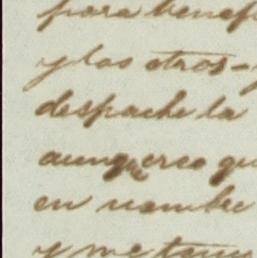 para benef
y las otros-
despache la
aunq.e creo qu
en nombre
y me ten